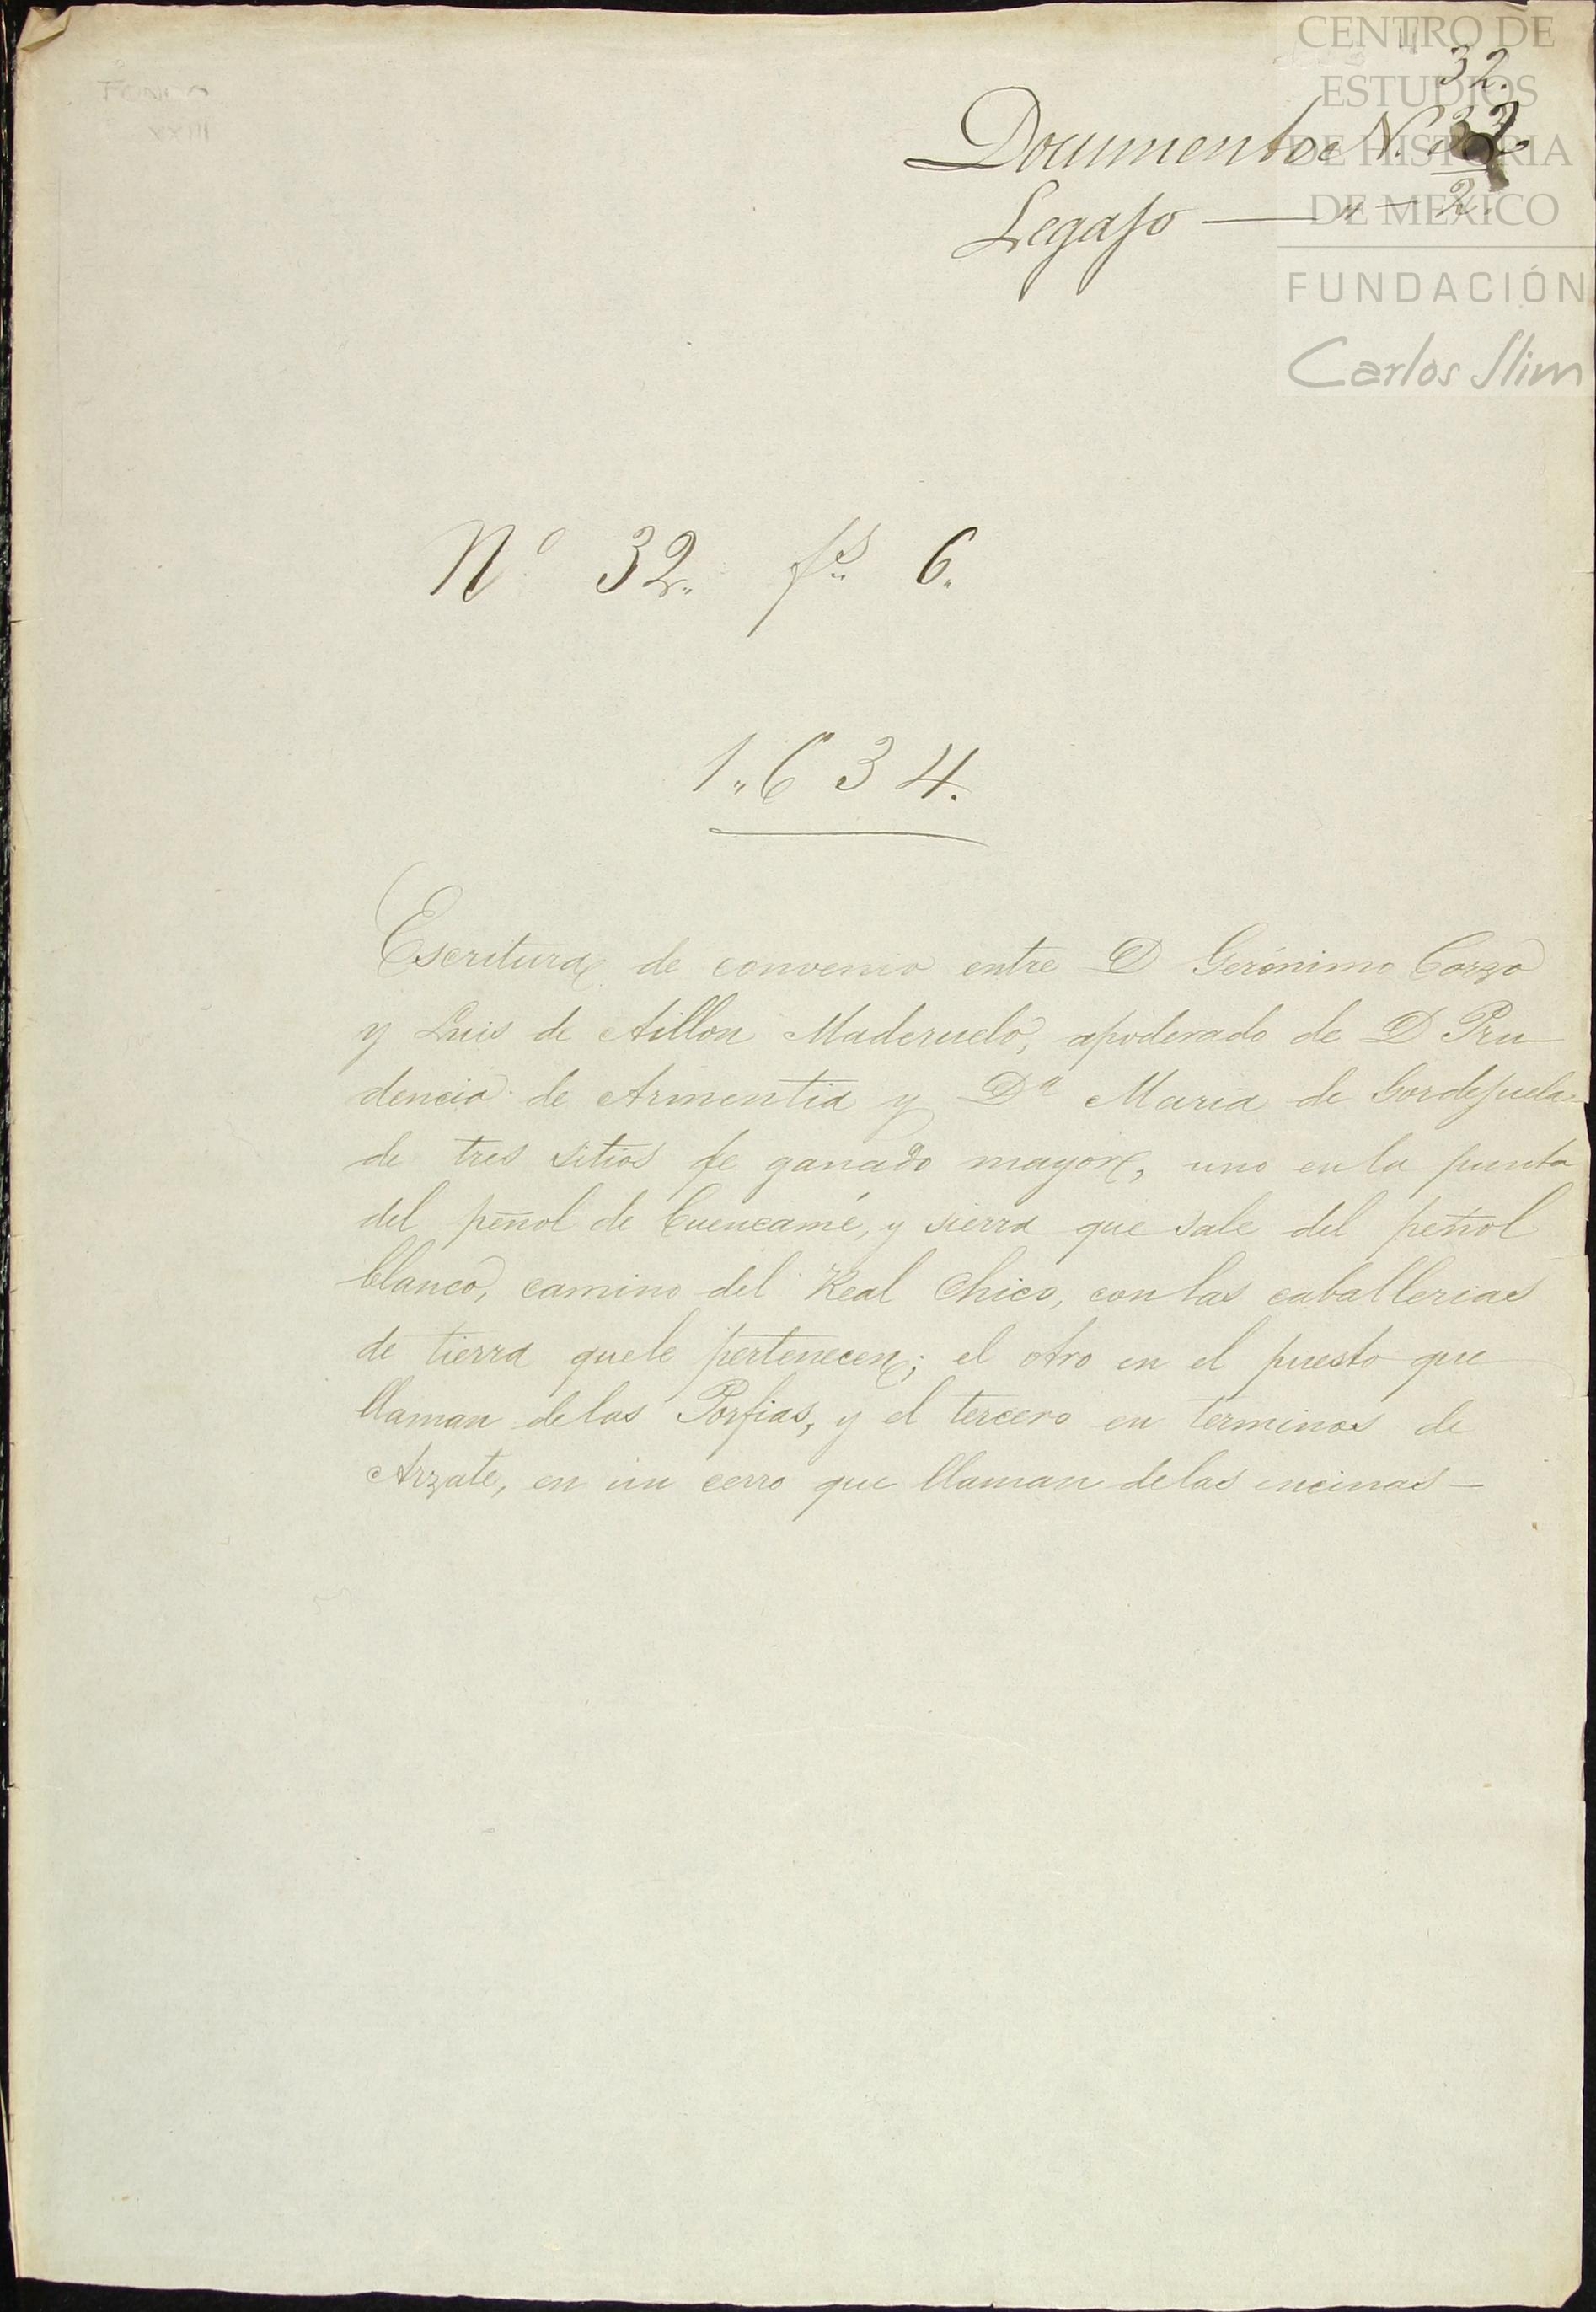 CENTRO DE
ESTUDIOS
DE HISTORIA
DE MEXICO
FUNDACIÓN
Carlos Slim
32.
Documento N.
Legajo — " — 2.
Nº 32. fs. 6.
1,,634.
Escritura de convenio entre D Gerónimo Corzo
y Luis de Aillon Maderuelo, apoderado de D Pru
dencio de Armentia y Dª Maria de Gordejuela
de tres sitios de ganado mayor, uno en la punta
del peñol de Cuencamé, y sierra que sale del peñol
blanco, camino del Real Chico, con las caballerias
de tierra quele pertenecen; el otro en el puesto que
llaman delas Porfias, y el tercero en terminos de
Arzate, en un cerro que llaman delas encinas —